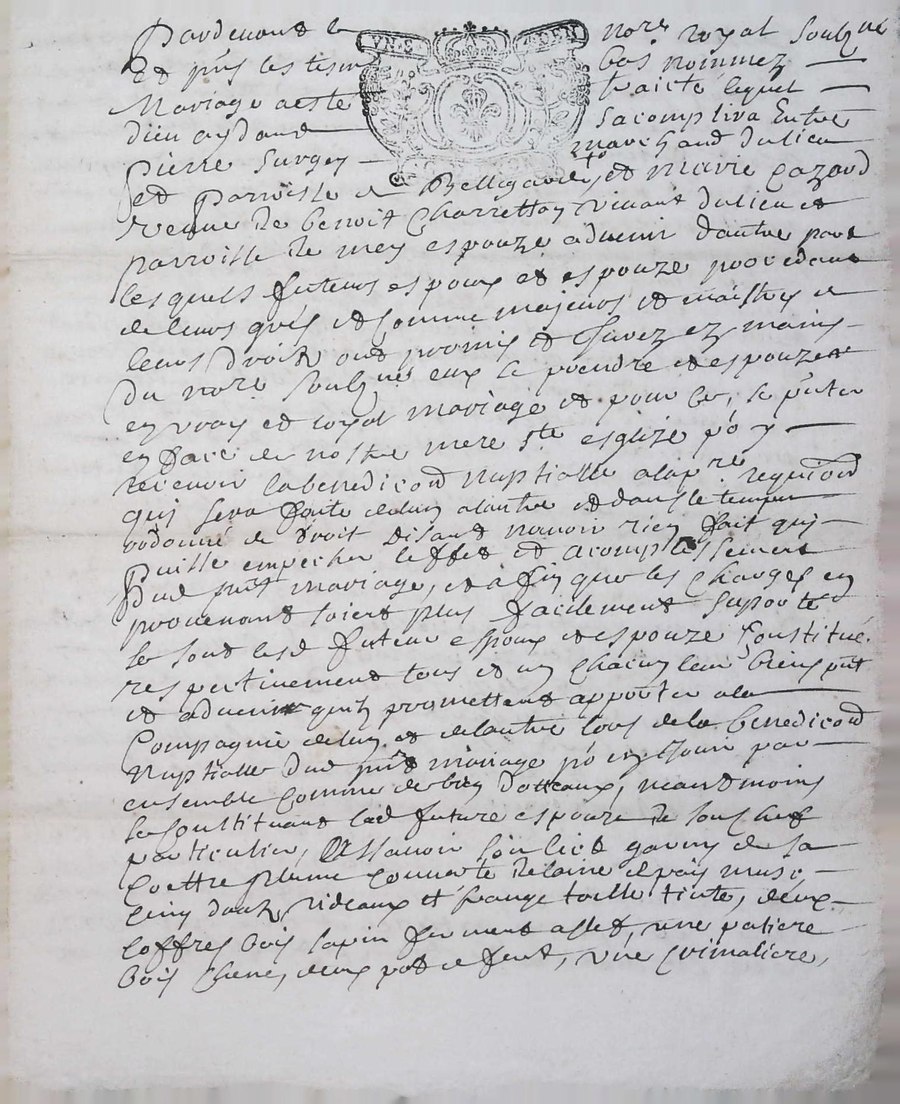 Pardevant le nore royal soubzne
Et pnts les tesm bas nommez
Mariage a este traicte lequel
dieu aydant sacomplira Entre
Pierre Surgey marchand du lieu
et Parroisse de Bellegarde, et marie Cazard
vefue de benoit Charretton vivant du lieu et
parroisse de mey espouze advenir dautre part
lesquels futeurs espoux et espouze procedant
de leurs grés et comme majeurs et maistres de
leurs droits ont promis et Jurez ez mains
du nore soubzné eux se prendre et espouzer
en vray et loyal mariage et pour ce, se pnter
en face de nostre mere ste esglize po y
recevoir la benediction nuptialle a la pre requi̅on
qui sera faite de lun a lautre et dans le temps
ordonné de droit disant navoir rien fait qui
Puisse empecher leffet et acomplissement
Dud pnt mariage, et afin que les charges en
provenant soient plus facilement suporté
se sont lesd futeur espoux et espouze Constitué
respectivement tous et un chacun leur biens pnt
et advenir quilz promettent apporter a la
Compagnie de lun et de lautre lors de la benediction
Nuptialle dud pnt mariage po en jouir par
ensemble comme de bien dotteaux, neantmoins
se Constituant lad future espouze de son chef
particulier, Assavoir son lict garny de sa
Coettre plume couverte de laine
cinq draps rideaux et frange toille tinte, deux
coffres bois sapin fermant a clef, une
bois chene, deux pot de font, une crimaliere,